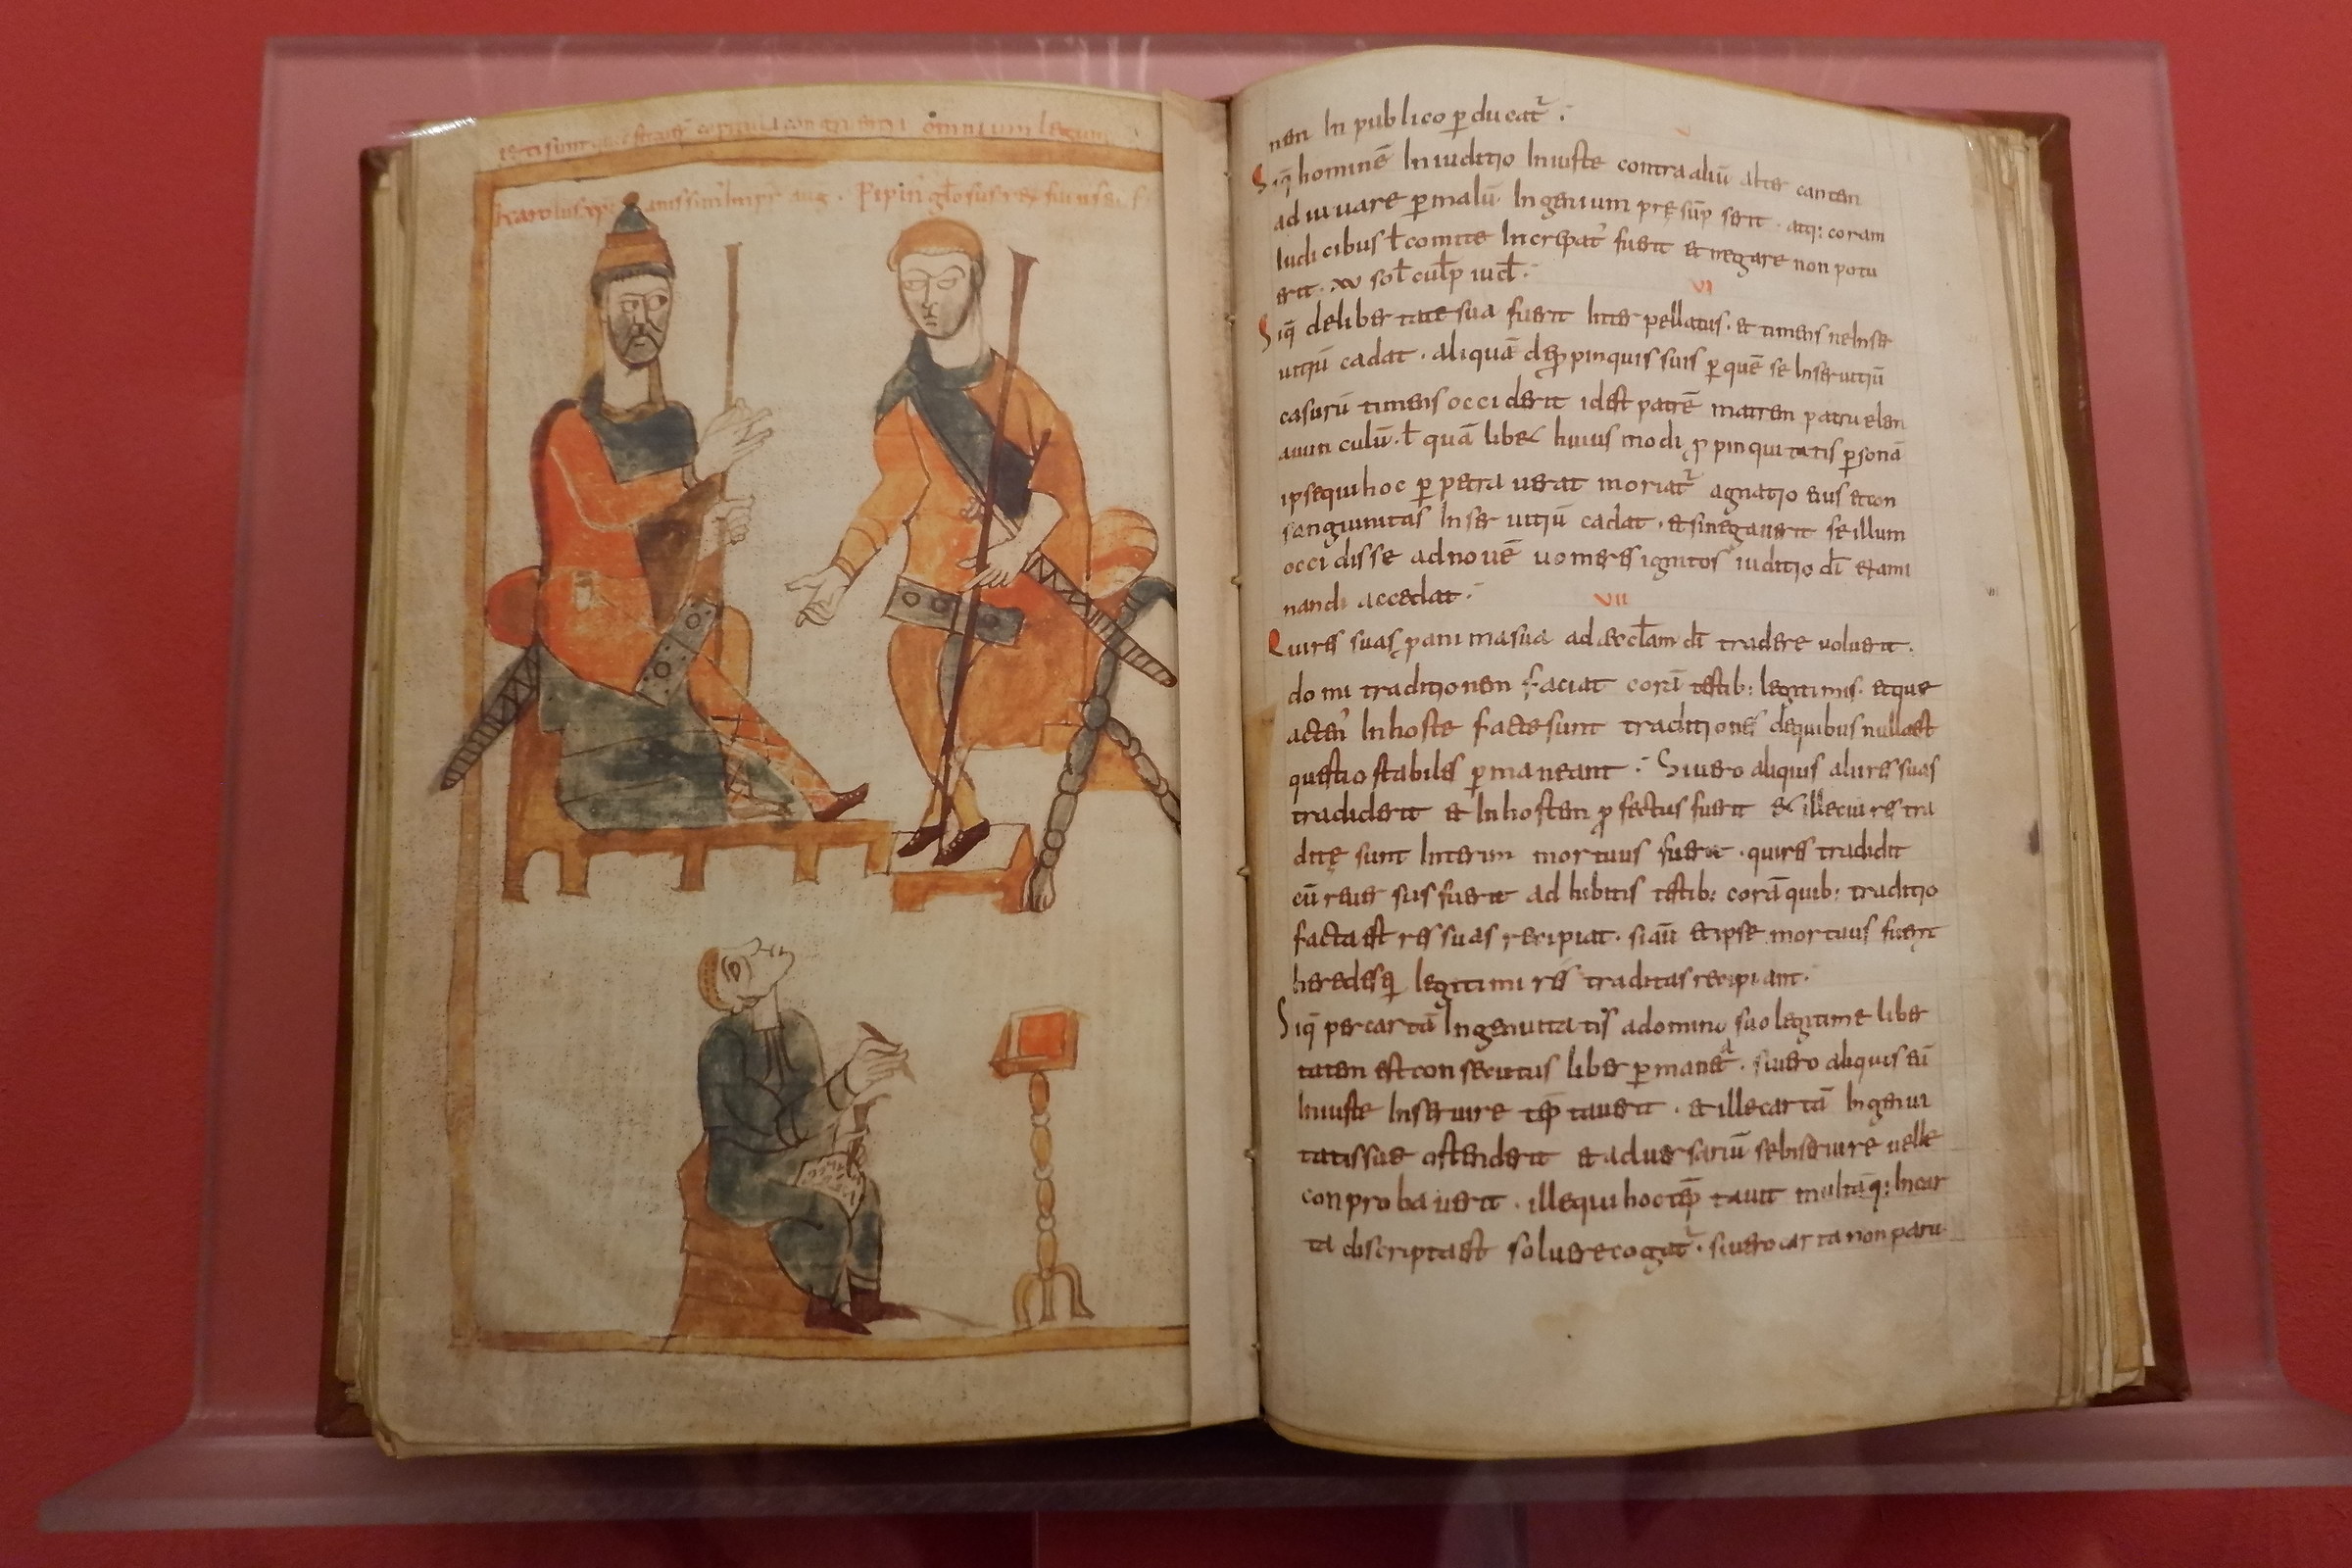 omnium legum
Karolus xpianissim Impr aug . Pipin gl̄osus rex filius ei
nen In publico p̱ducat᷑ :
V
Siq̄ hominē In iuditio Iniuste contra aliū alter cauten
adiuuare p̱ malū Ingenium pręsūp serit · atq: coram
Iudicibus ł comite Increpat᷑ fuerit et negare non potu
erit · xv sol̄ cul̄p iud̄ :
VI
Siq̄ de libertate sua fuerit Inter pellatus · et timens ne Inser
uitiū cadat · aliquā de p̱pinquis suis p̱ quē se In seruitiū
casurū timens occiderit id est patrē matren patruelen
auunculū · ł quā liber huius modi p̱pinquitatis p̱sonā
ipse qui hoc p̱petra uerat moriat᷑ agnatio eius et con
sanguinitas In ser uitiū cadat · et si negauerit se illum
occidisse ad nouē uomeres ignitos iuditio dī exami
nandi accedat :
VII
Qui res suas p̱ anima sua ad aeccl̄am dī tradere uoluerit ·
domi traditionen faciat corā testib: legitimis · et que
acten᷑ In hoste facte sunt traditiones de quibus nulla est
questio stabiles p̱maneant : Si uero aliquis alii res suas
tradiderit et In hosten p̱fectus fuerit et ille cui res tra
ditę sunt Interim mortuus fuerit · qui res tradidit
cū reuersus fuerit ad hibitis testib: corā quib: traditio
facta est res suas recipiat · si aū et ipse mortuus fuerit
heredes ei legitimi res traditas recipiant ·
Siq̄ per cartā Ingenuitatis a domino suo legitime liber
taten est consecutus liber p̱manet᷑ · si uero aliquis eū
Iniuste Inseruire teṗ tauerit · et ille cartā Ingenui
tatis sue ostenderit et aduersariū se Inseruire uelle
conprobauerit · ille qui hoc teṗ tauit multā q: In car
ta discripta est soluere cogat᷑ · si uero carta non paru